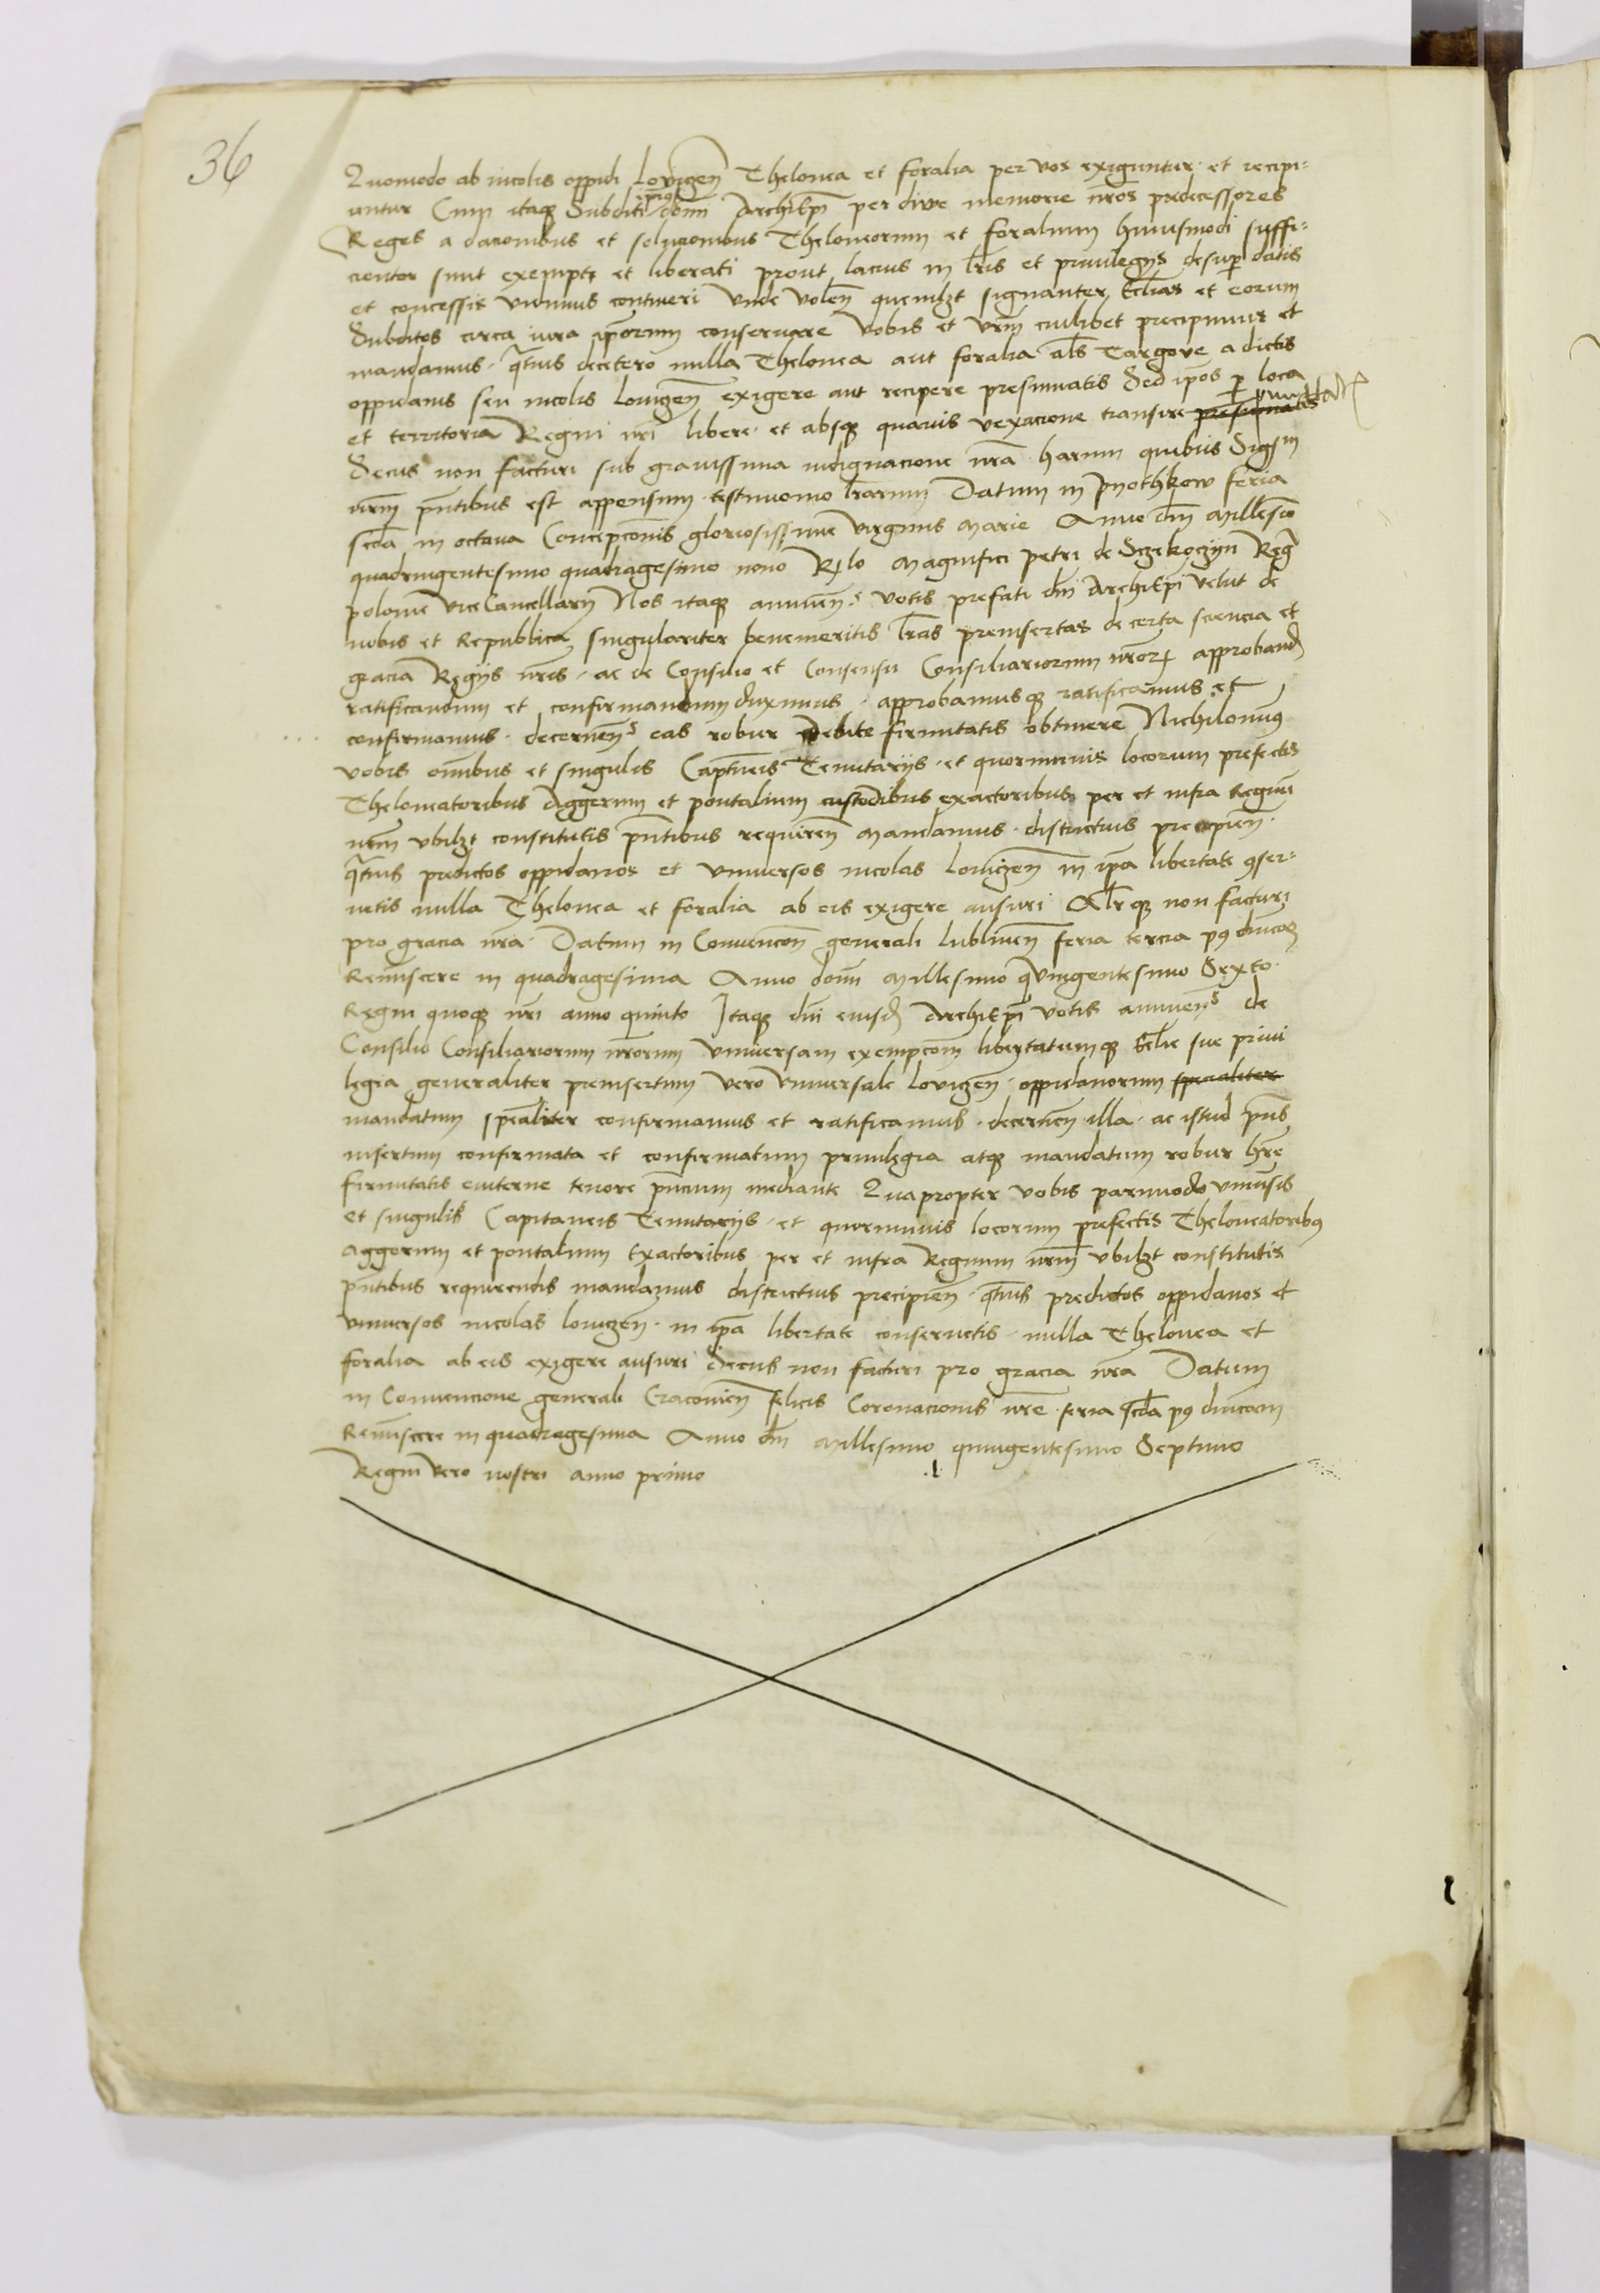 36
Quomodo ab incolis oppidi Lovigen̄ Thelonea et foralia per vos exiguntur et recipi-
untur Cum itaqꝫ Subditi ipius domī Archiepī per dive memorie nr̄os predecessores
Reges a dacionibus et solucionibus Theloneorum et foralium huiusmodi suffi-
cienter sunt exempti et liberati prout lacius in lr̄is et privilegijs desup datis
et concessis vidimus contineri Unde volen̄ quemlꝫt signanter Ecl̄ias et eorum
Subditos circa iura ipsorum conservare Vobis et vrm̄ cuilibet precipimus et
mandamus qt̄nus decetero nulla Thelonea aut foralia al̄s Targove a dictis
oppidanis seu incolis Lovigen̄ exigere aut recipere presumatis Sed ipos̄ p loca
et territoria Regni nr̄i libere et absqꝫ quavis vexacione transire presumatis permittatis
Secus non facturi sub gravissima indignacione nr̄a harum quibus Sigm̄
nrm̄ pn̄tibus est appensum testimonio lr̄arum Datum in Pyothkow feria
scd̄a in octava Concepcōnis gloriosissime virginis Marie Anno dm̄ Millesīo
quadringentesimo quadragesimo nono Rꝫlo Magnifici Petri de Sczekoczyn Regī
polonie Vice Cancellarij Nos itaqꝫ annuen̄s votis prefati dm̄ Archiepī velut de
nobis et Republica singulariter benemeritis lr̄as preinsertas de certa sciencia et
gracia Regijs nr̄is ac de Consilio et Consensu Consiliariorum nr̄orꝝ approband̄
ratificandum et confirmandum duximus approbamusqꝫ ratificamus et
confirmamus decernen̄s eas robur debite firmitatis obtinere Nichilominꝰ
vobis om̄ibus et singulis Captn̄eis Tenutarijs et quorumvis locorum prefectis
Theloneatoribus Aggerum et pontalium custodibus exactoribus per et infra Regnū
nrm̄ ubilꝫt constitutis pn̄tibus requiren̄ Mandamus districtius precipien̄
qt̄nus predictos oppidanos et universos incolas Lovigen̄ in ipa libertate ꝯser-
vetis nulla Thelonea et foralia ab eis exigere ausuri Alr̄ qꝫ non facturi
pro gracia nr̄a Datum in Convencōn generali lublinen̄ feria tercia pꝰ dn̄icam
Reminiscere in quadragesima Anno domī Millesimo quingentesimo Sexto
Regni quoqꝫ nr̄i anno quinto Itaqꝫ dn̄i eiusd̄ Archiepī votis annuen̄s de
Consilio Consiliariorum nr̄orum universam exempcōm libertatumqꝫ Ecl̄ie sue privi
legia generaliter preinsertum vero universale Lovigen̄ oppidanorum specialiter
mandatum spēaliter confirmamus et ratificamus decernen̄ illa ac istud pn̄s
insertum confirmata et confirmatum privilegia atqꝫ mandatum robur hr̄e
firmitatis eviterne tenore pn̄cium mediante Quapropter vobis parimodo univ̄sis
et singulis Capitaneis Tenutarijs et quorumvis locorum prefectis Theloneatoribꝰ
Aggerum et pontalium Exactoribus per et infra Regnum nrm̄ ubilꝫt constitutis
pn̄tibus requirendis mandamus districtius precipien̄ qt̄nus predictos oppidanos et
universos incolas lovigen̄ in ipa libertate conservetis nulla Thelonea et
foralia ab eis exigere ausuri Secus non facturi pro gracia nr̄a Datum
in Convencione generali Cracovien̄ felicis Coronacionis nr̄e feria scd̄a pꝰ dn̄icam
Reminiscere in quadragesima Anno dm̄ Millesimo quingentesimo Septimo
Regni vero nostri anno primo